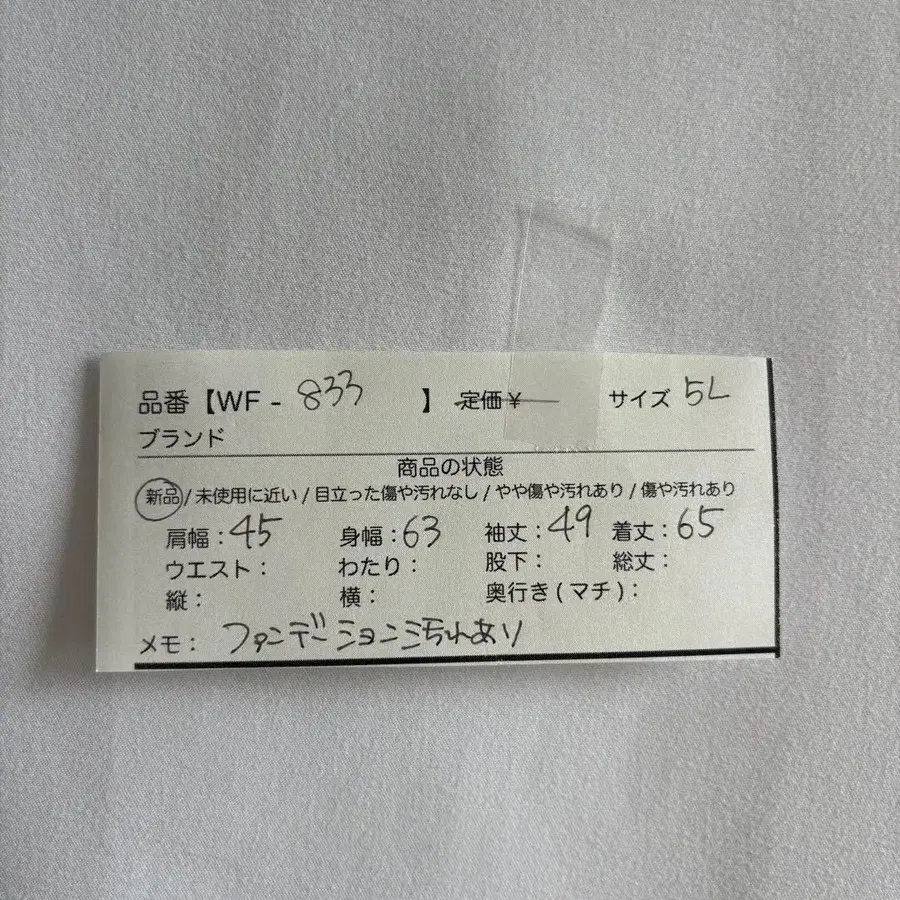 品番【WF - 833 】 定価¥ サイズ 5L
ブランド
商品の状態
新品/未使用に近い/目立った傷や汚れなし/やや傷や汚れあり/傷や汚れあり
肩幅:45 身幅:63 袖丈:49 着丈:65
ウエスト: わたり: 股下: 総丈:
縦: 横: 奥行き(マチ):
メモ: ファンデーション汚れあり